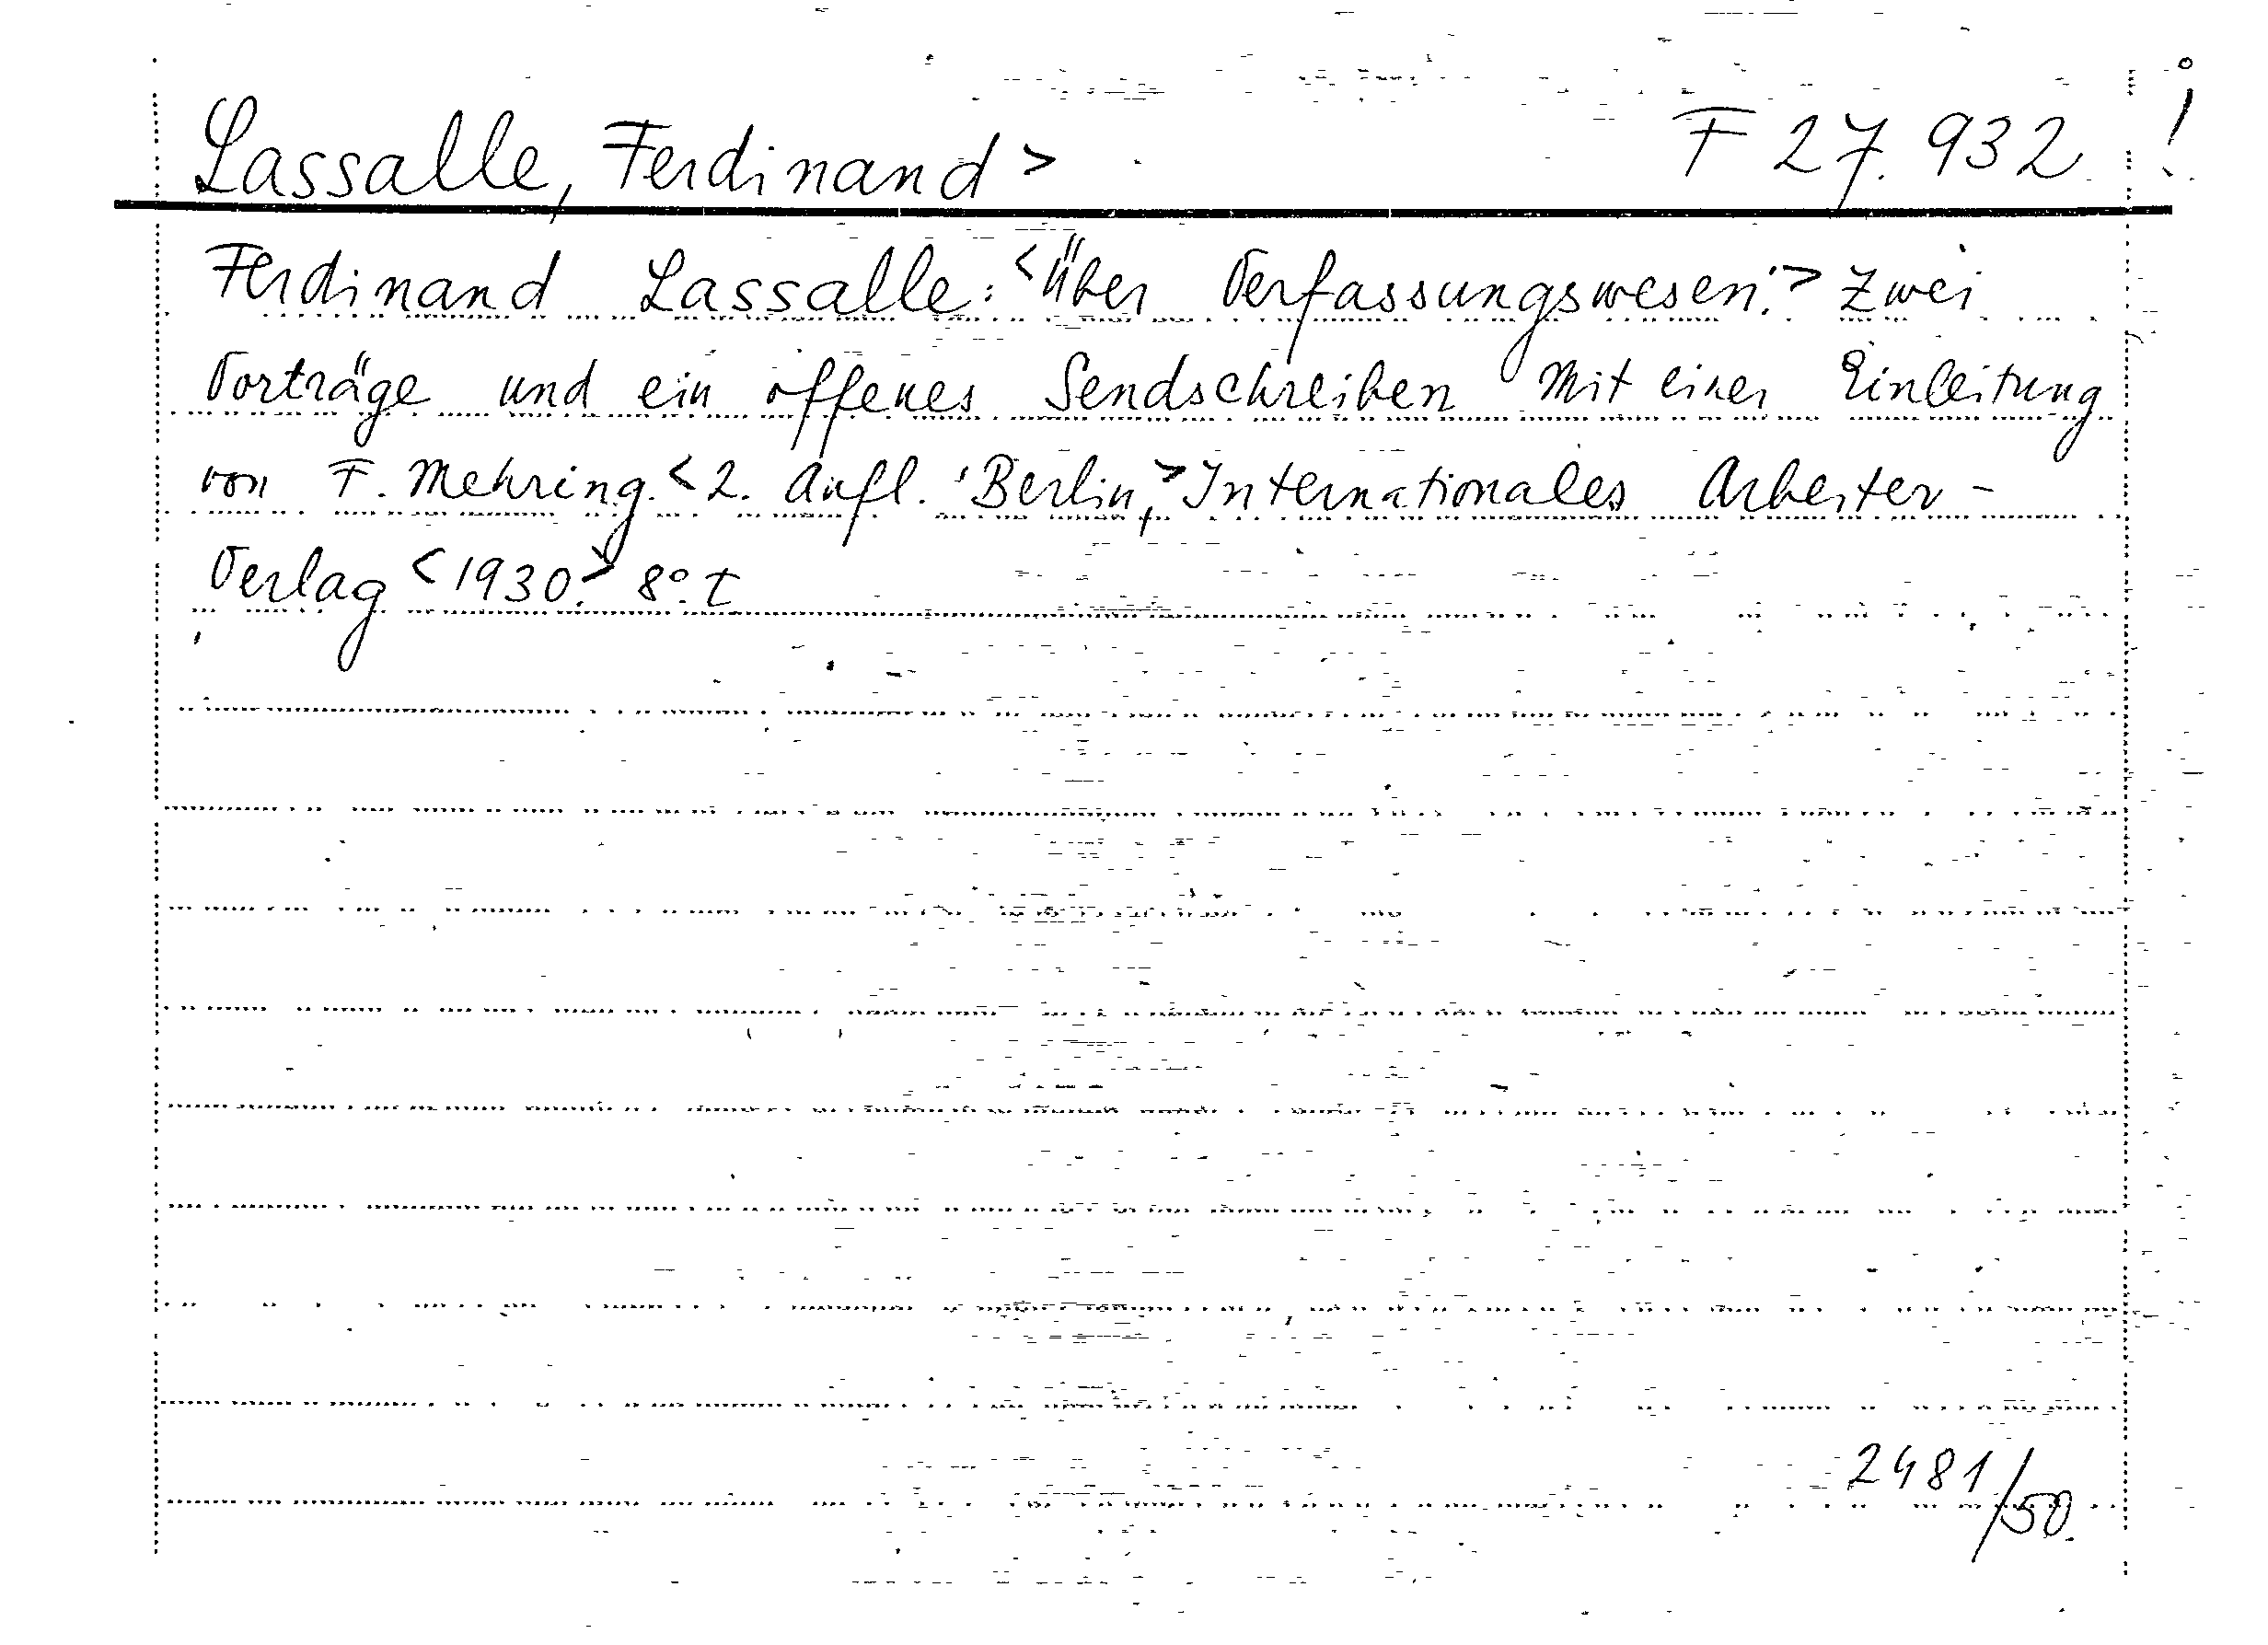 Lassalle, Ferdinand > F 27.932. !
Ferdinand Lassalle: <Über Verfassungswesen.> Zwei
Vorträge und ein offenes Sendschreiben mit einer Einleitung
von F. Mehring. <2. Aufl. Berlin,> Internationales Arbeiter-
Verlag <1930.> 8°. t
2481/50.